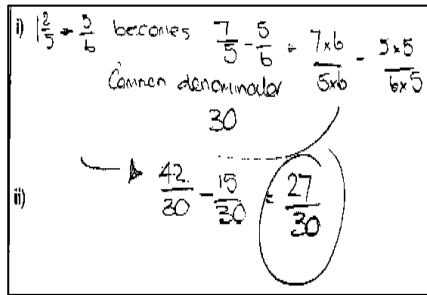 i) 1 2/5 - 5/6 becomes 7/5 - 5/6 = 7x6/5x6 - 5x5/6x5
Common denominator
30
ii) 42/30 - 15/30 = 27/30